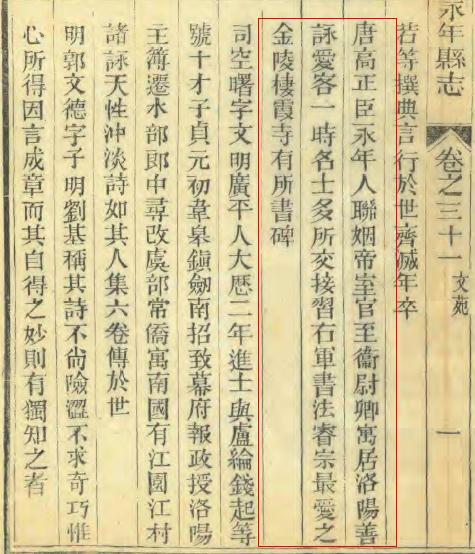 永年縣志
卷之三十一
文苑
一
若等撰典言行於世齊滅年卒
唐高正臣永年人聯姻帝室官至衞尉卿寓居洛陽善
詠愛客一時名士多所交接習右軍書法睿宗最愛之
金陵棲霞寺有所書碑
司空曙字文明廣平人大歷二年進士與盧綸錢起等
號十才子貞元初韋皋鎭劒南招致幕府報政授洛陽
主簿遷水部郎中尋改虞部常僑寓南國有江園江村
諸詠天性沖淡詩如其人集六卷傳於世
明郭文德字子明劉基稱其詩不尙險澀不求奇巧惟
心所得因言成章而其自得之妙則有獨知之者